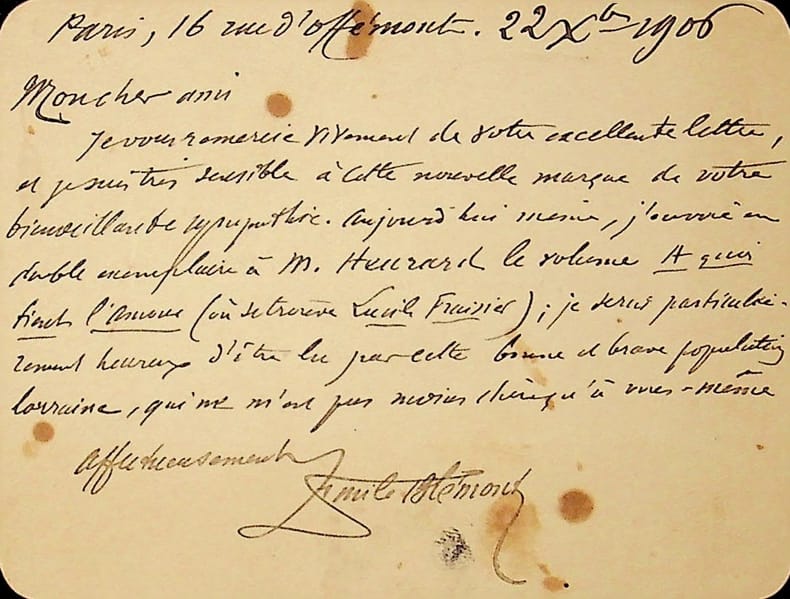 Paris, 16 rue d'Offémont. 22 Xbre 1906
Mon cher ami
Je vous remercie vivement de votre excellente lettre,
et je suis très sensible à cette nouvelle marque de votre
bienveillante sympathie. Aujourd'hui même, j'envoie en
double exemplaire à M. le volume A quoi
tient l'amour (où se trouve Lucile Fraisier) ; je serais particuliè-
rement heureux d'être lu par cette bonne et brave population
lorraine, qui ne m'est pas moins chère qu'à vous-même
Affectueusement
Emile Blémont